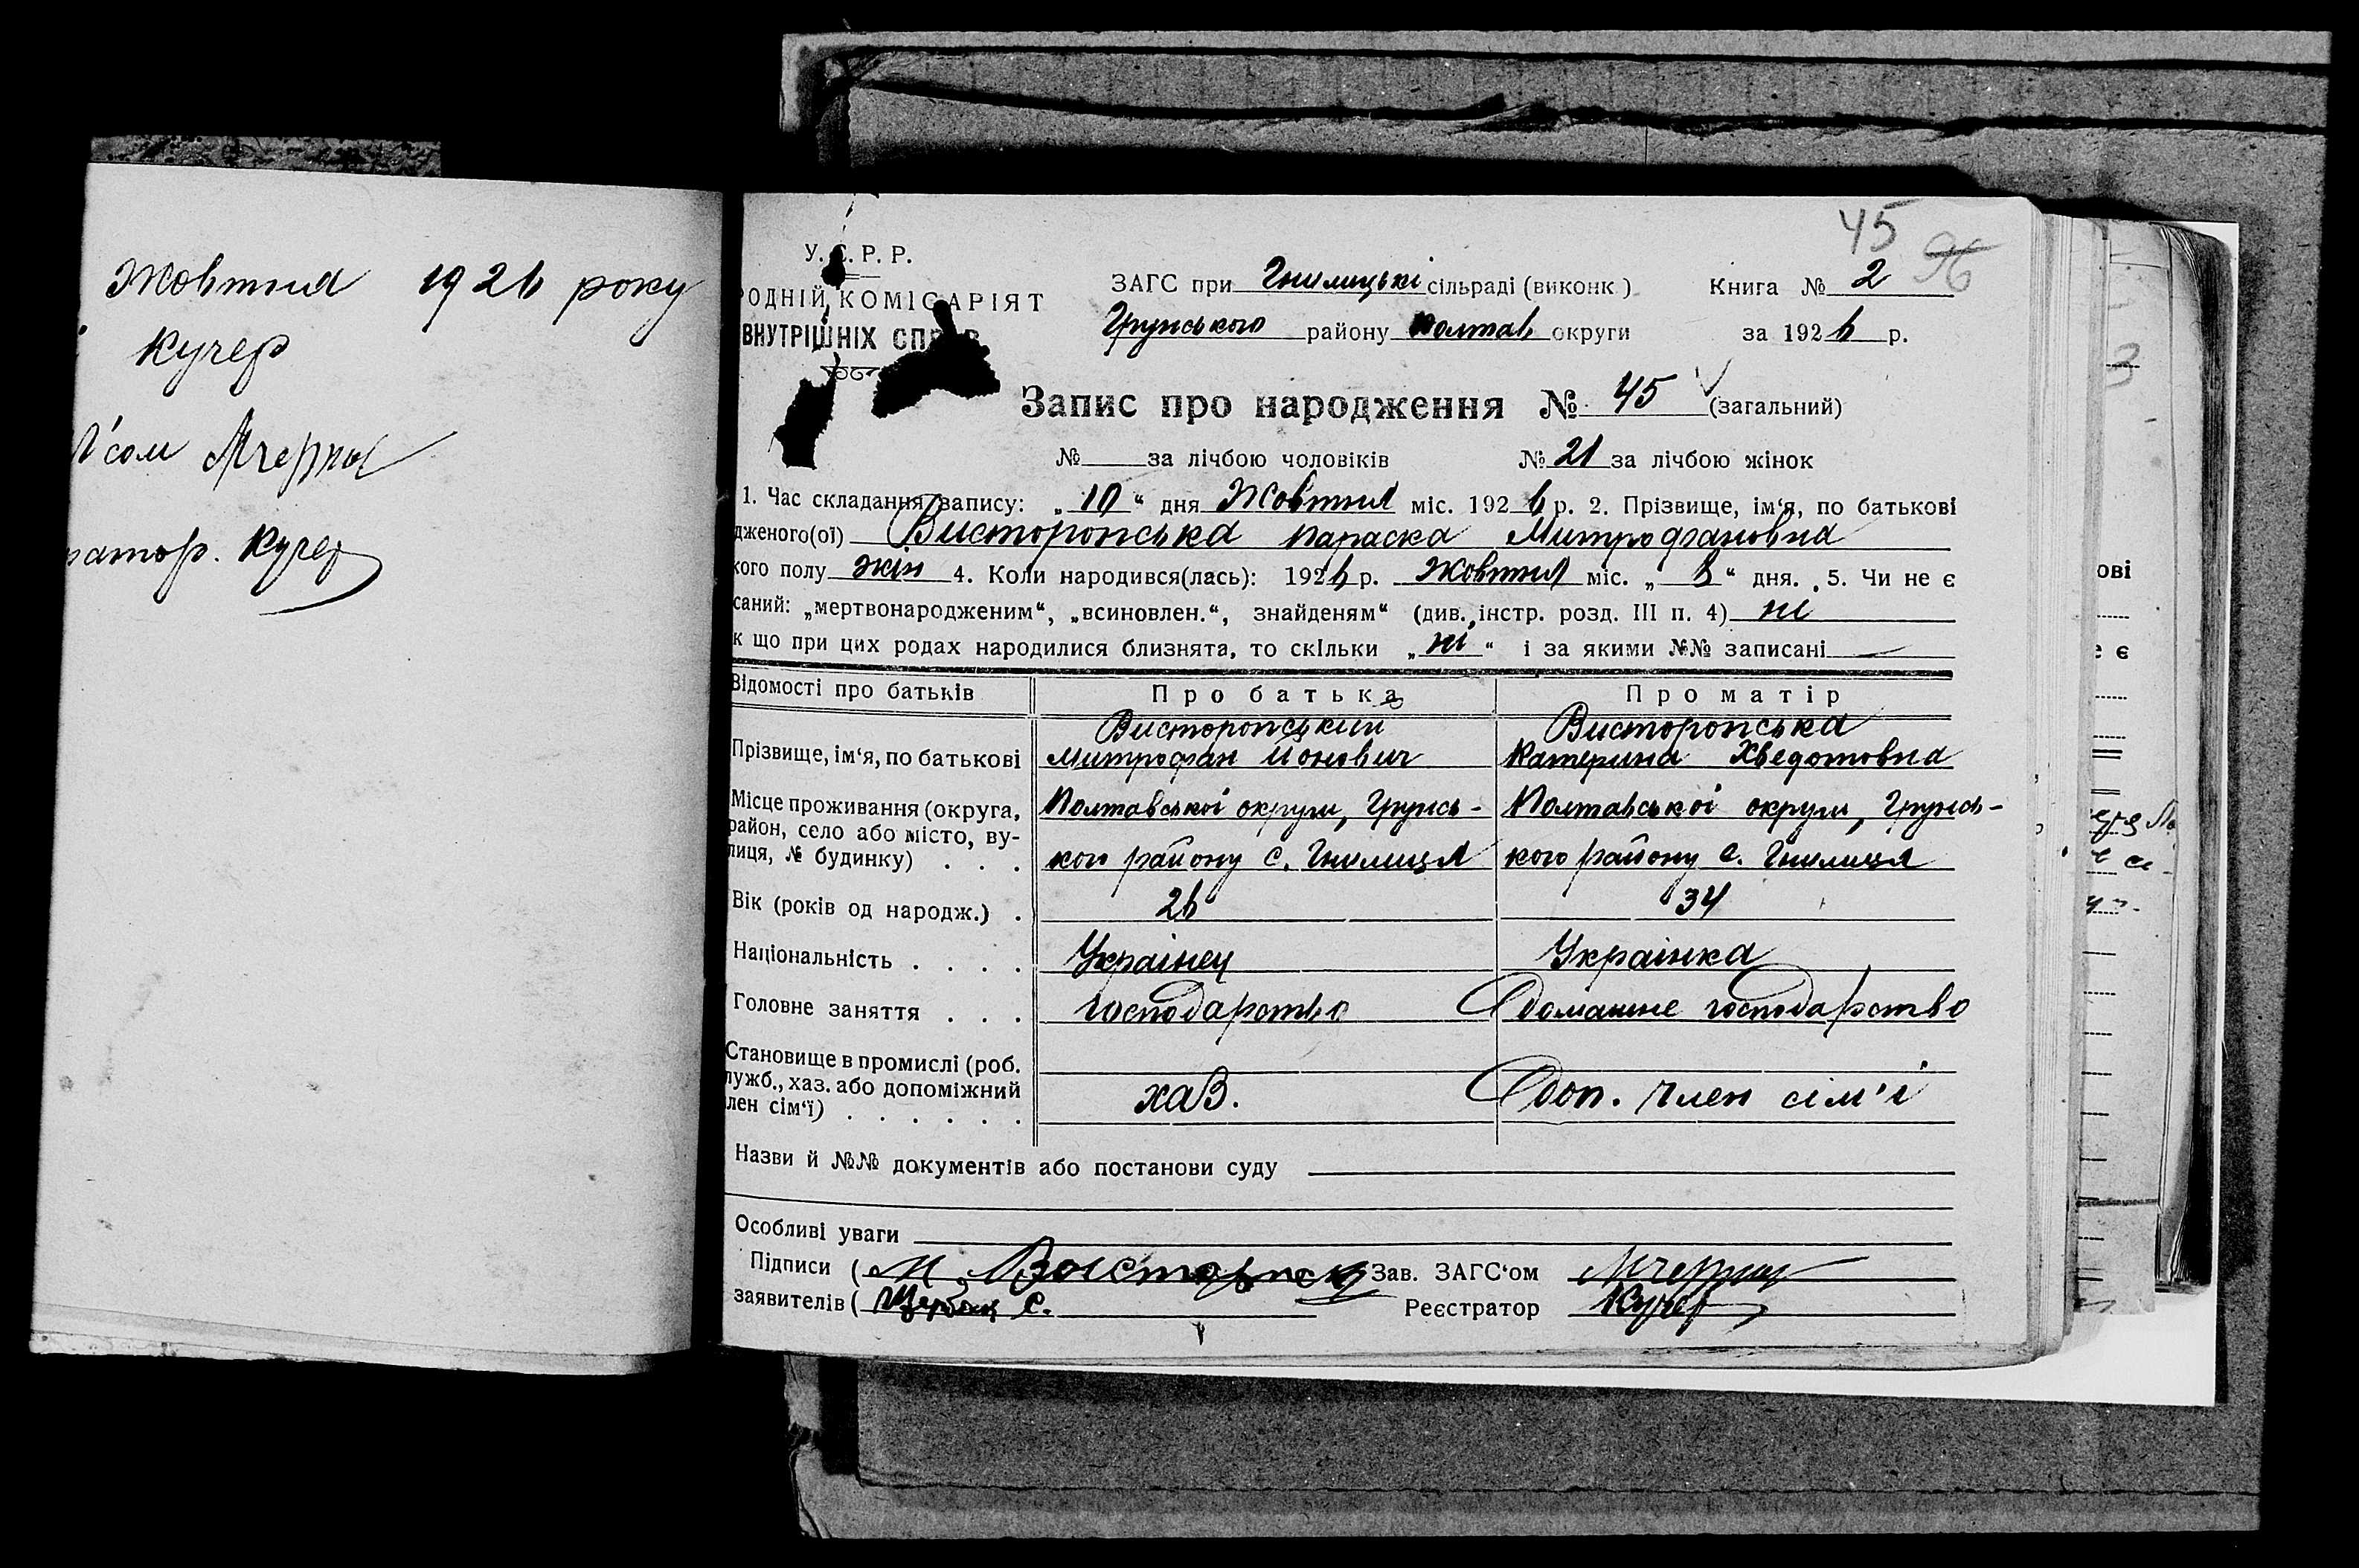 Жовтня 1926 року
Кучер
Кучер
45 96
У. С. Р. Р.
РОДНІЙ КОМІСАРІЯТ
ВНУТРІШНІХ СПРАВ
ЗАГС при Гнилицькі сільраді (виконк.) Книга № 2
Грунського району Полтав округи за 1926 р.
Запис про народження № 45 (загальний)
№ за лічбою чоловіків № 21 за лічбою жінок
1. Час складання запису: „10“ дня Жовтня міс. 1926 р. 2. Прізвище, ім‘я, по батькові
дженого(ої) Висторопська Параска Митрофановна
кого полу жін 4. Коли народився(лась): 1926 р. Жовтня міс. „8“ дня. 5. Чи не є
саний: „мертвонародженим“, „всиновлен.“, знайденям“ (див. інстр. розд. III п. 4) ні
к що при цих родах народилися близнята, то скільки „ні“ і за якими №№ записані —
Відомості про батьків Про батька Про матір
Прізвище, ім‘я, по батькові Висторопський Митрофан Йонович Висторопська Катерина Хведотовна
Місце проживання (округа, Полтавської округи, Грунсь- Полтавської округи, Грунсь-
район, село або місто, ву-
лиця, № будинку) . . . кого району с. Гнилиця кого району с. Гнилиця
Вік (років од народж.) . 26 34
Національність . . . . Українец Українка
Головне заняття . . . господарство домашне господарство
Становище в промислі (роб.
лужб., хаз. або допоміжний хаз. доп. член сім'ї
лен сім‘ї) . . . . . .
Назви й №№ документів або постанови суду
Особливі уваги
Підписи ( М Зав. ЗАГС‘ом
заявителів ( С. Реєстратор Кучер